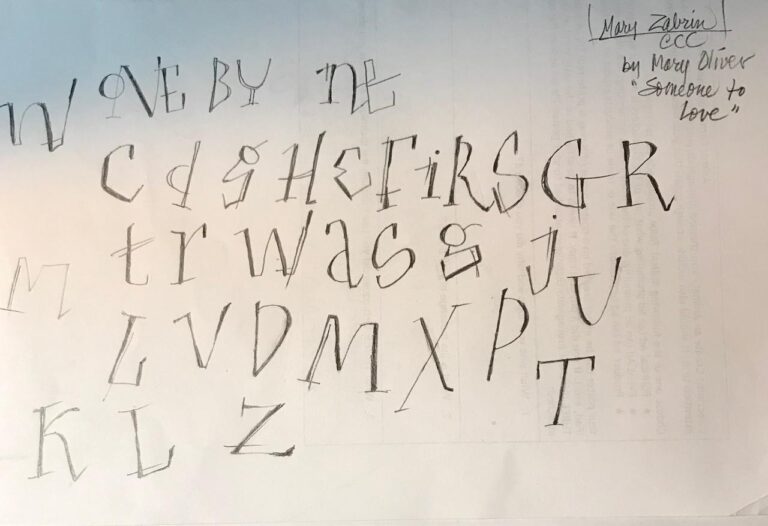 Mary Zabrin
CCC
by Mary Oliver
"Someone to
Love"
W OVE BY ne
C d g H E F i R S G R
t r W a S g j
M
U
L V D M X P
T
K L Z